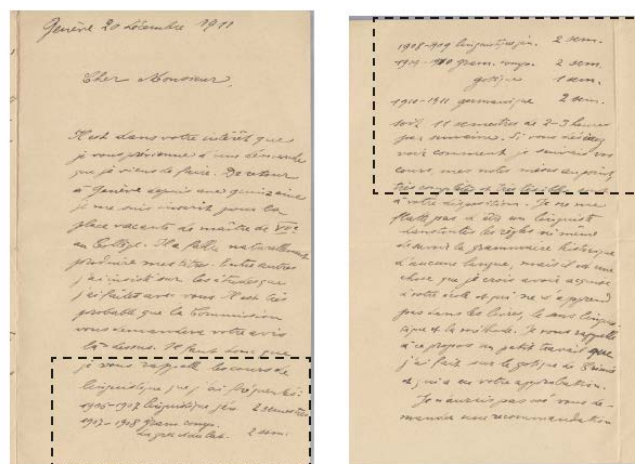 Genève 20 décembre 1911
Cher Monsieur,
Il est dans votre intérêt que
je vous prévienne d'une démarche
que je viens de faire. De retour
à Genève depuis une quinzaine
je me suis inscrit pour la
place vacante de maître de
au Collège. Il a fallu naturellement
produire mes titres. Entre autres
j'ai insisté sur les études que
j'ai faites avec vous. Il est très
probable que la Commission
vous demandera votre avis
là-dessus. Il faut donc que
je vous rappelle les cours de
linguistique que j'ai fréquentés:
1906-1907 linguistique gén. 2 semestres
1907-1908 gram. comp.
du grec et du lat. 2 sem.
1908-1909 linguistique gén. 2 sem.
1909-1910 gram. comp. 2 sem.
gotique 1 sem.
1910-1911 germanique 2 sem.
soit 11 semestres de 2-3 heures
par semaine. Si vous désirez
voir comment je suivais vos
cours, mes notes mises au point,
très complètes et très lisibles sont
à votre disposition. Je ne me
flatte pas d'être un linguiste
dans toutes les règles ni même
de savoir la grammaire historique
d'aucune langue, mais il est une
chose que je crois avoir acquise
à votre école et qui ne s'apprend
pas dans les livres, le sens linguis-
tique et la méthode. Je vous rappelle
à ce propos un petit travail que
j'ai fait sur le gotique de Crimée
et qui a eu votre approbation.
Je n'aurais pas osé vous de-
mander une recommandation